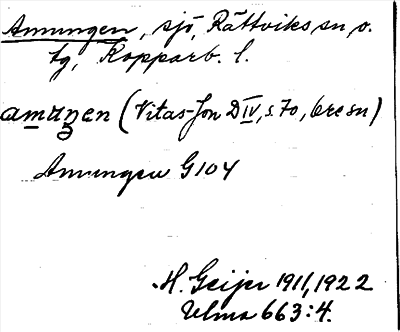 Amungen, sjö, Rättviks sn o.
tg, Kopparb. l.
amuŋen (Vitas-Jon D IV, s. 70, Ore sn)
Amungen G 104
H. Geijer 1911, 1922
Ulma 663:4.